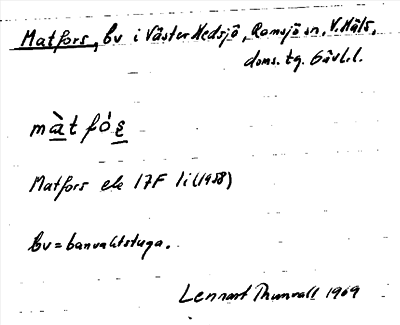 Matfors, bv i Väster Hedsjö, Ramsjö sn, V. Häls.
doms. tg. Gävl.l.
màt fó
Matfors ek 17F li (1938)
bv = banvaktstuga.
Lennart Thunvall 1969